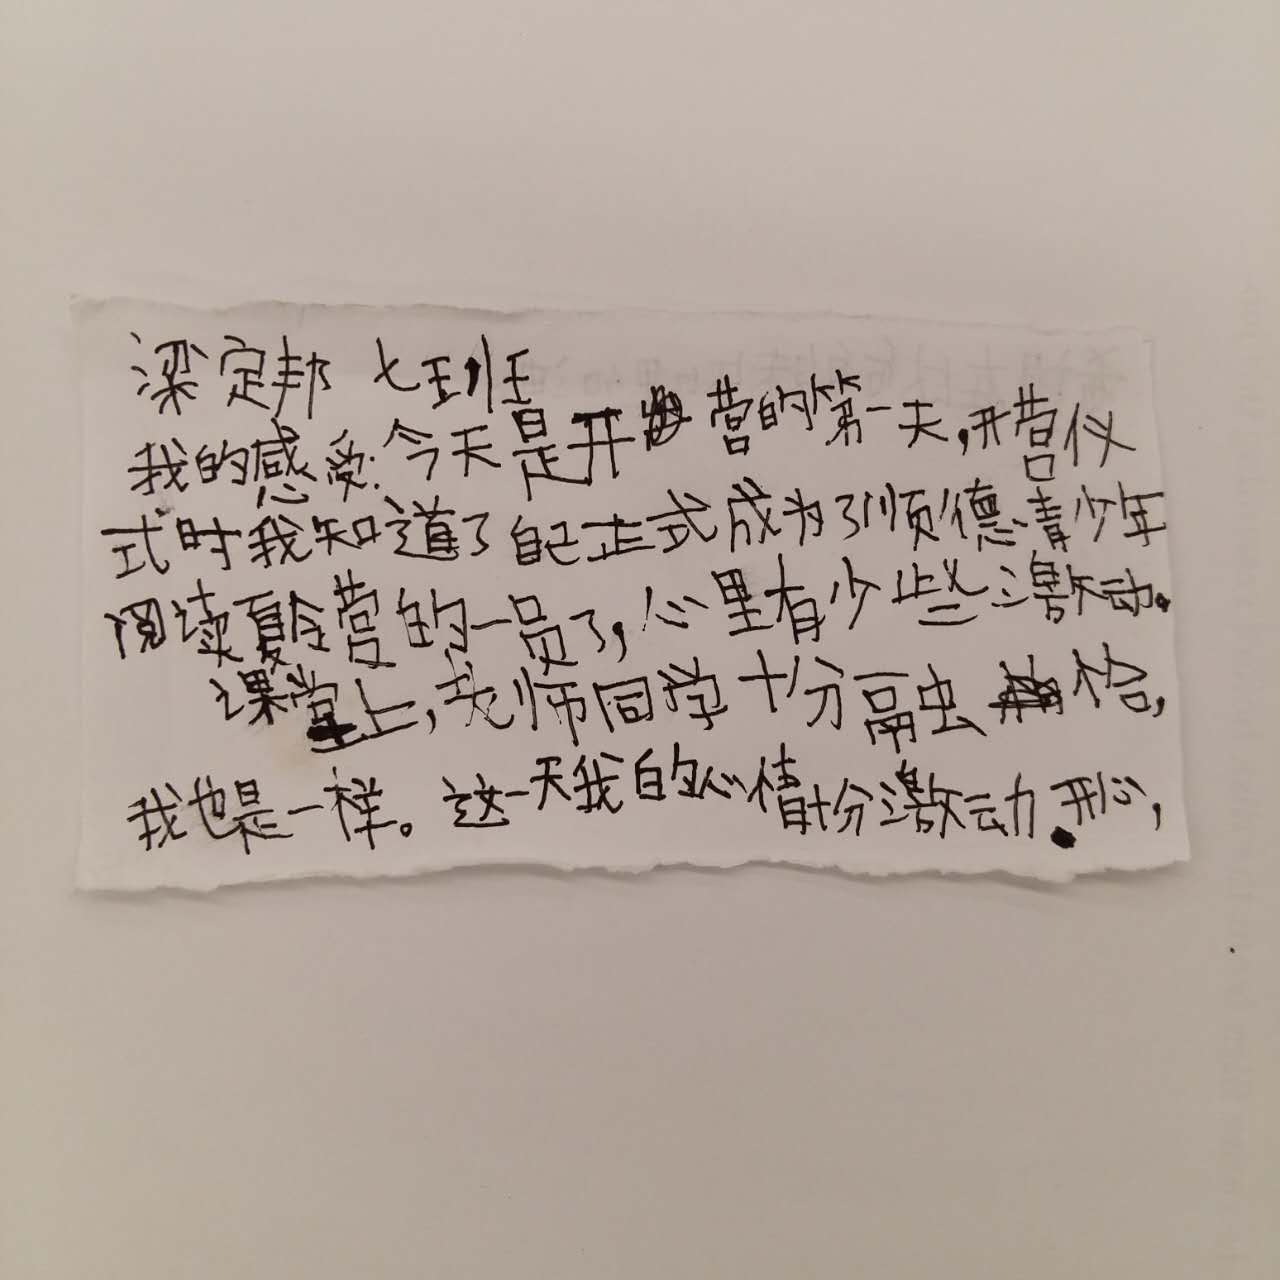 梁定邦 七班
我的感受:今天是开营的第一天,开营仪
式时我知道了自己正式成为了顺德青少年
阅读夏令营的一员了,心里有少些激动。
课堂上,老师同学十分融恰,
我也是一样。这一天我的心情十分激动.开心,